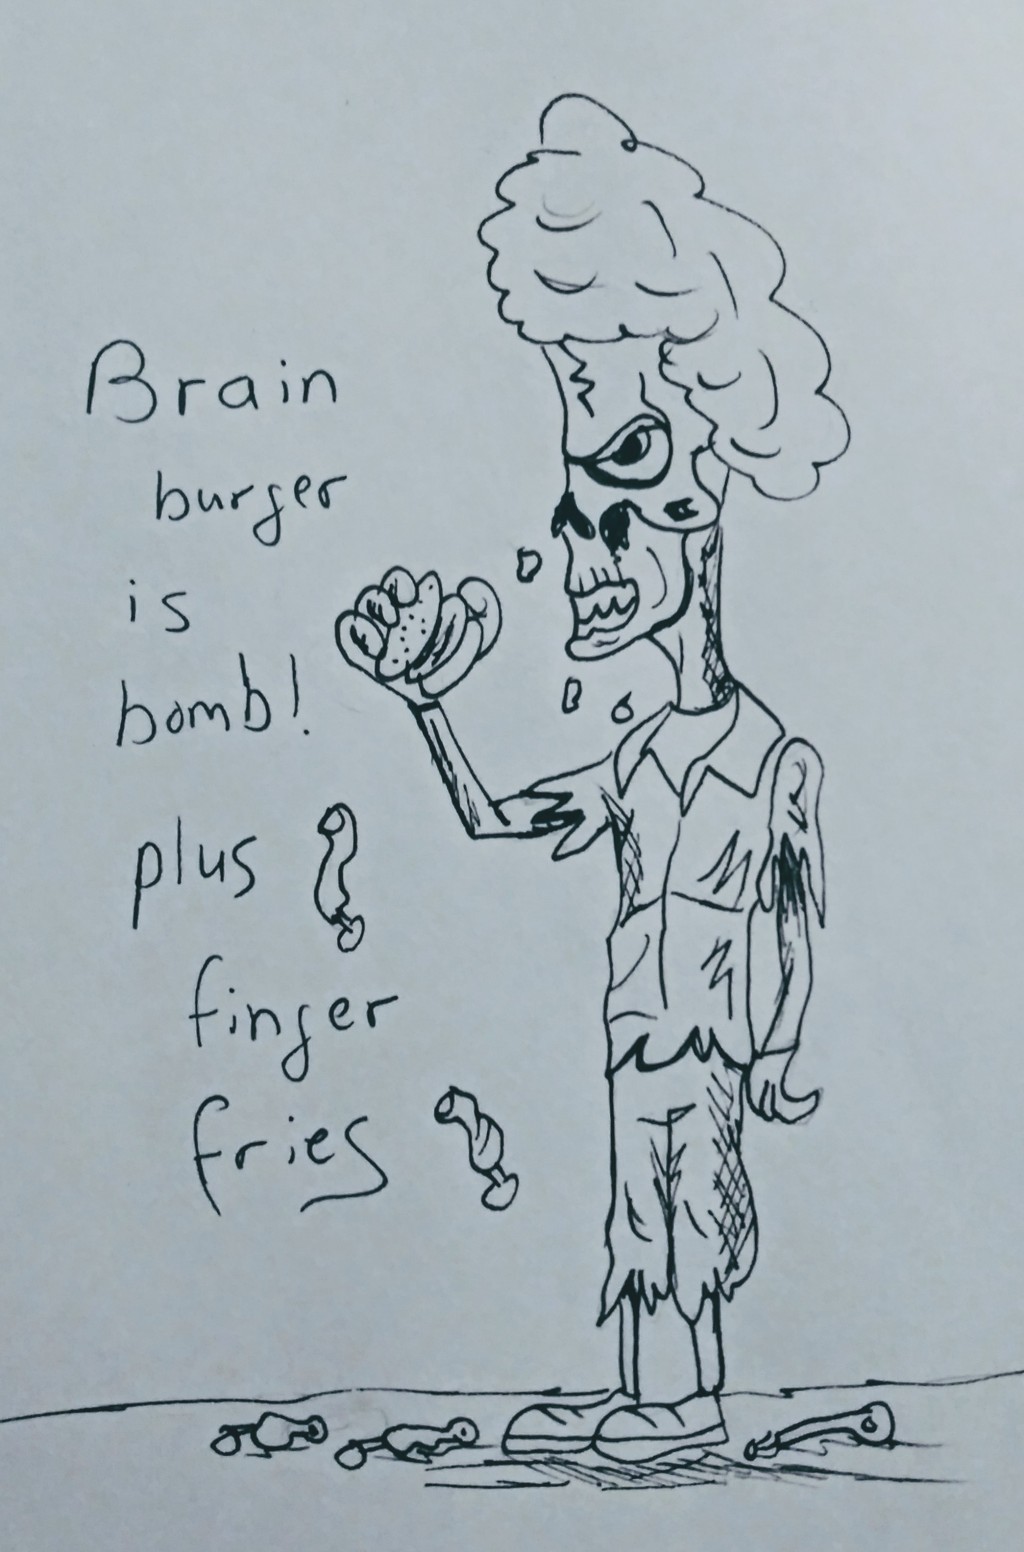 Brain
burger
is
bomb!
plus
finger
fries